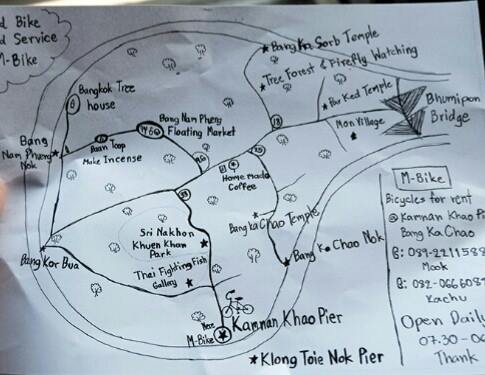 d Bike
d Service
M-Bike
Bang Ka Sorb Temple
Tree Forest & Firefly Watching
Bangkok Tree
house
6
Bang Nam Pherng
Floating Market
Baan Toop
Make Incense
Bang
Nam Pherng
Nok
18
Pa Ked Temple
Mon Village
Bhumipon
Bridge
Home made
Coffee
Sri Nakhon
Khuen Khan
Park
Bang Ka Chao Temple
Bang Kor Bua
Thai Fighting Fish
Gallery
Bang Ka Chao Nok
M-Bike
Kamnan Khao Pier
Klong Toie Nok Pier
M-Bike
Bicycles for rent
@ Kamnan Khao Pi
Bang Ka Chao
: 089-2211588
Mook
: 082-066608
Kachu
Open Daily
07.30-0
Thank